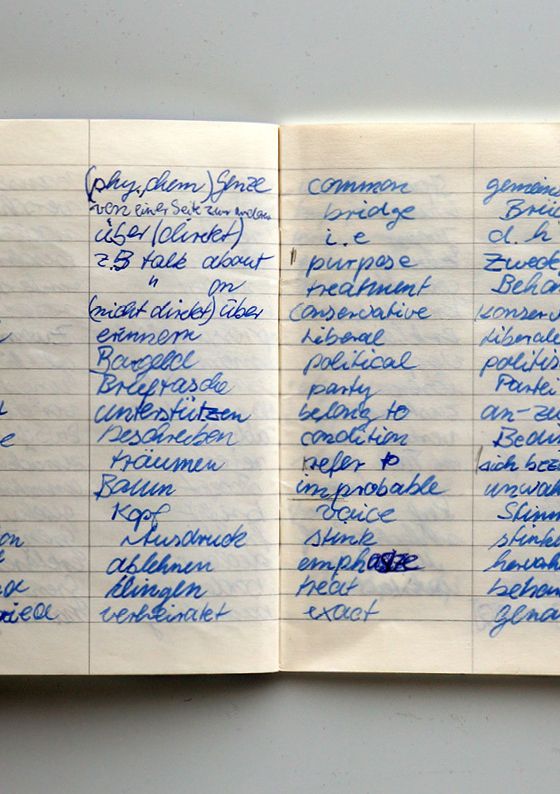 (phy. chem) Genze
von einer Seite zur anderen
über (direkt)
z.B talk about
" on
(nicht direkt) über
erinnern
Bargeld
Brieftasche
unterstützen
beschreiben
träumen
Baum
Kopf
Ausdruck
ablehnen
klingen
verheiratet
common gemein
bridge Brü
i.e d.h
purpose Zweck
treatment Behan
conservative konserv
liberal liberale
political politis
party Partei
belong to an-zu
condition Bedin
refer to sich bez
improbable unwah
voice Stimm
stink stink
emphasize hervorh
treat behan
exact gena